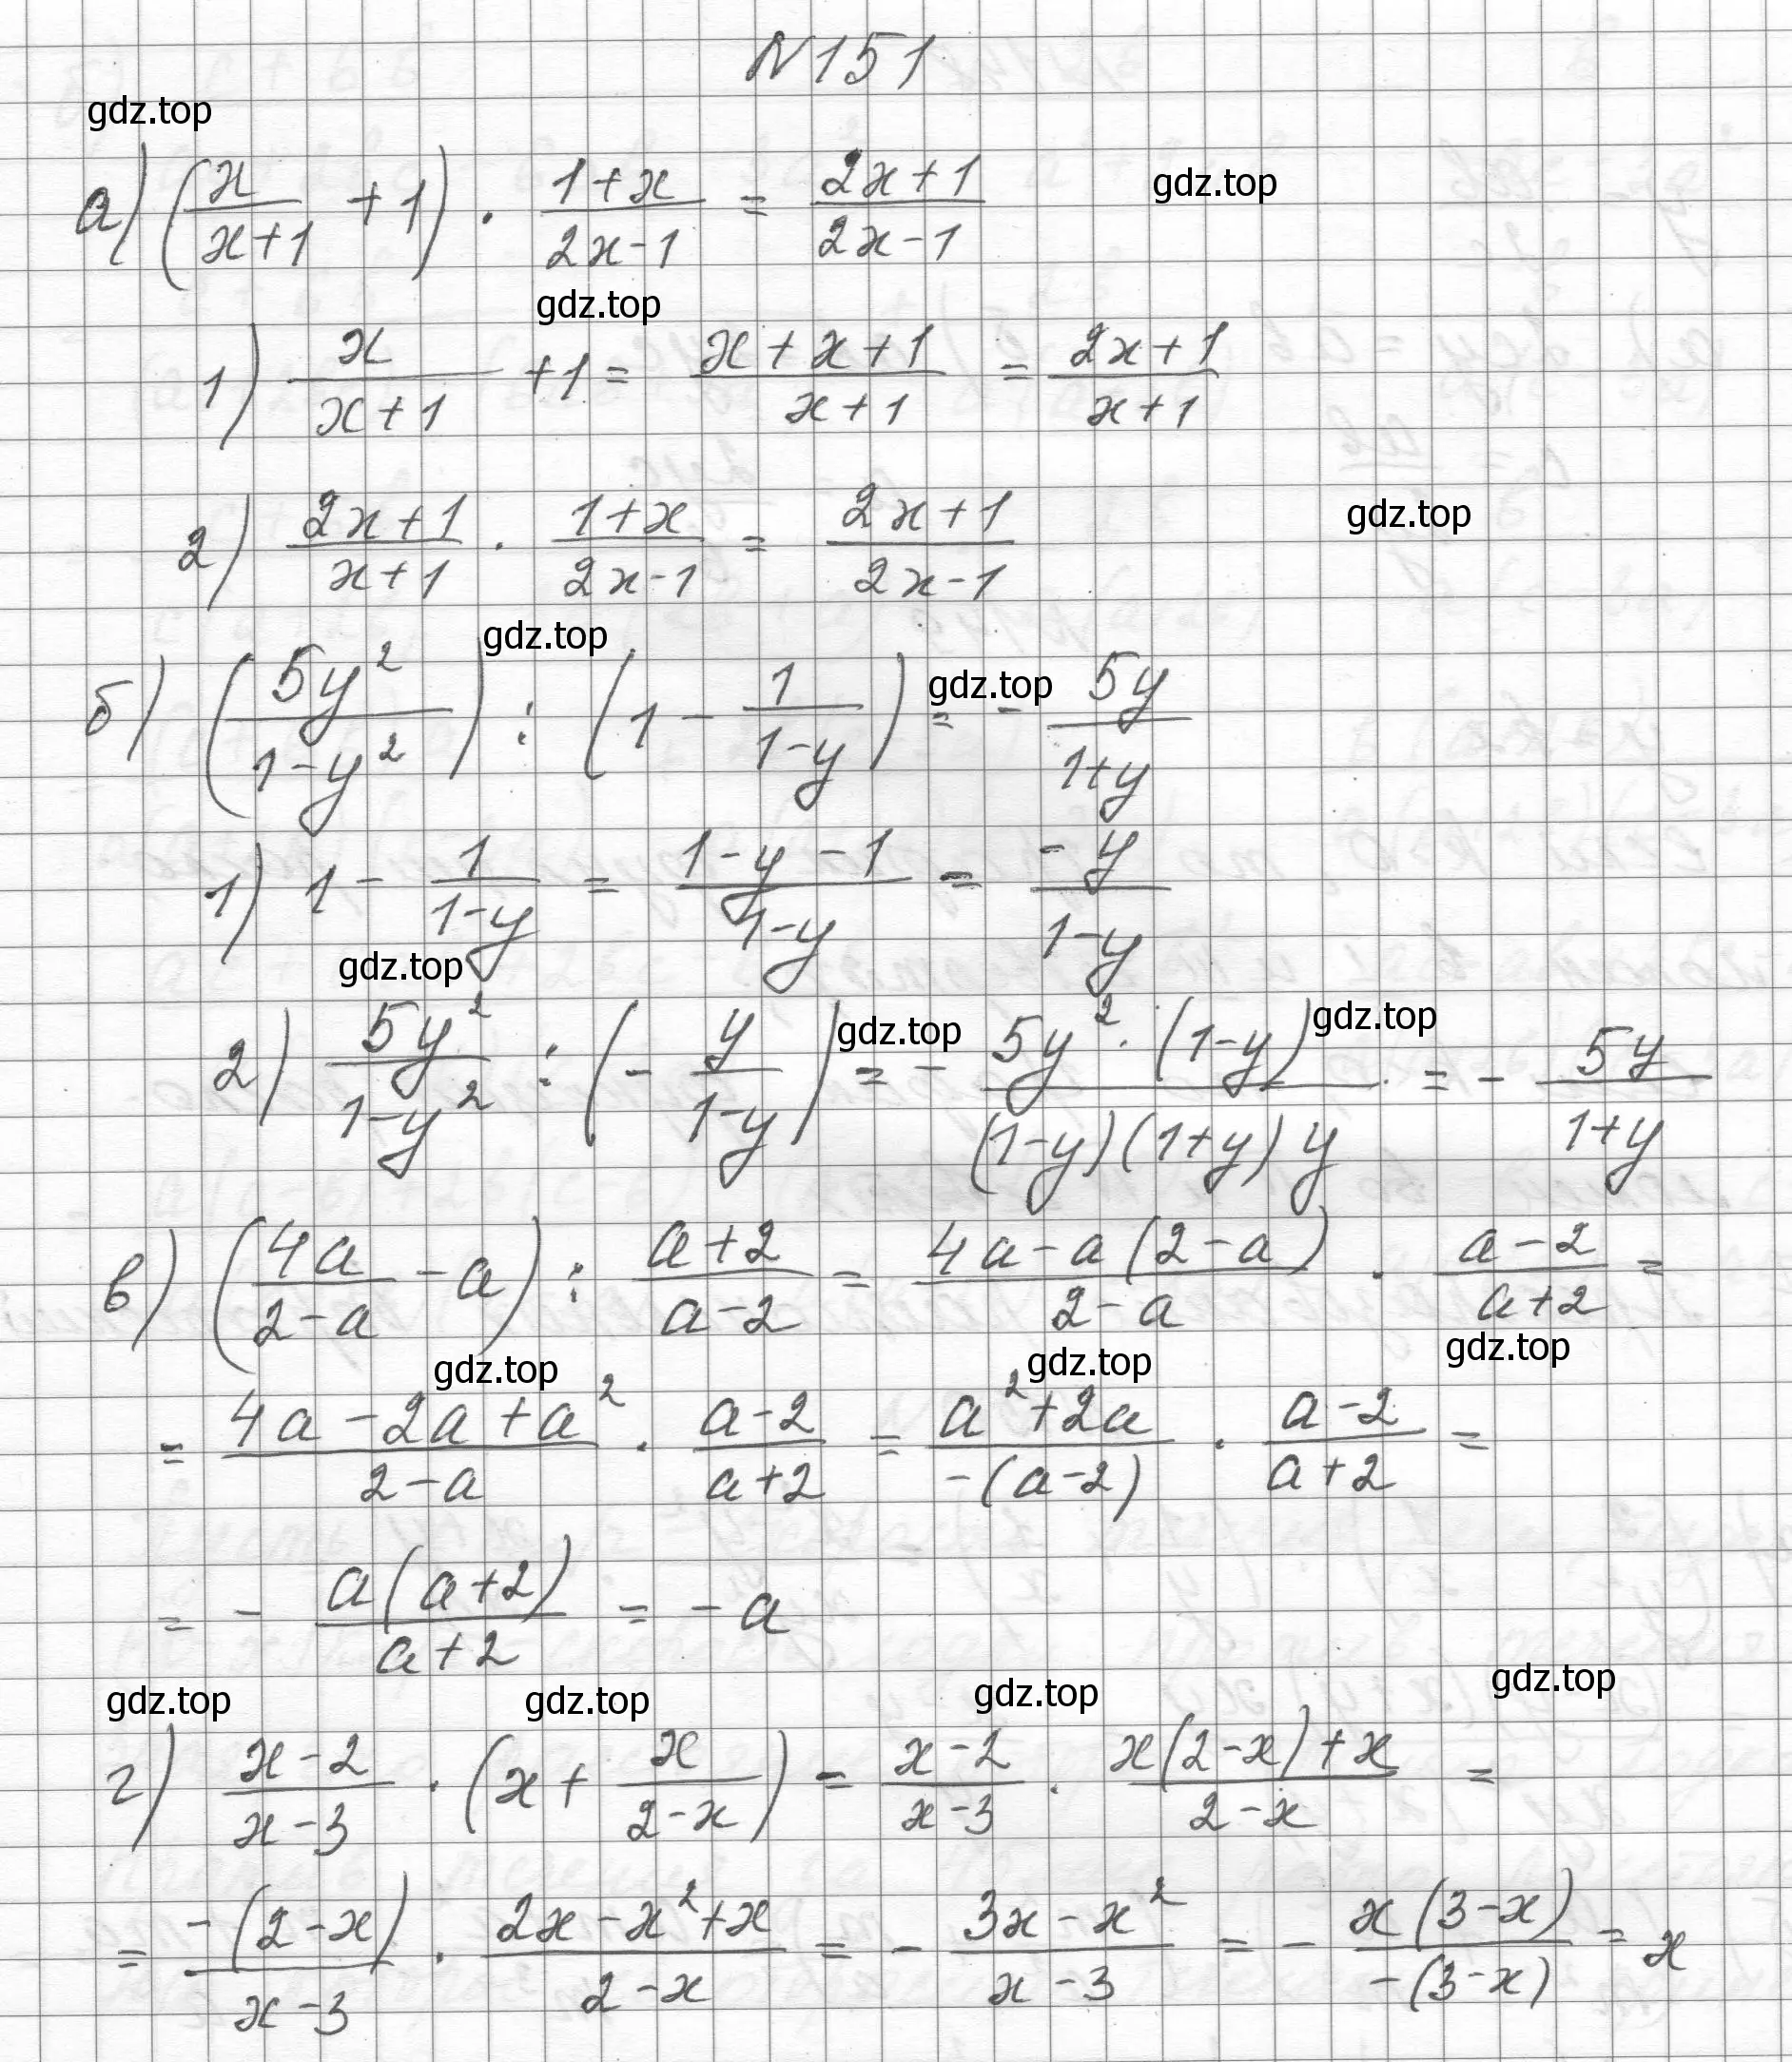 N151
gdz.top
а) (x/(x+1) + 1) · (1+x)/(2x-1) = (2x+1)/(2x-1)
gdz.top
gdz.top
1) x/(x+1) + 1 = (x+x+1)/(x+1) = (2x+1)/(x+1)
2) (2x+1)/(x+1) · (1+x)/(2x-1) = (2x+1)/(2x-1)
gdz.top
gdz.top
б) (5y²/(1-y²)) : (1 - 1/(1-y)) = - 5y/(1+y)
gdz.top
1) 1 - 1/(1-y) = (1-y-1)/(1-y) = -y/(1-y)
gdz.top
2) 5y²/(1-y²) : (- y/(1-y)) = - (5y² · (1-y))/((1-y)(1+y)y) = - 5y/(1+y)
gdz.top
gdz.top
в) (4a/(2-a) - a) : (a+2)/(a-2) = (4a-a(2-a))/(2-a) · (a-2)/(a+2) =
gdz.top
gdz.top
gdz.top
= (4a-2a+a²)/(2-a) · (a-2)/(a+2) = (a²+2a)/(-(a-2)) · (a-2)/(a+2) =
= - a(a+2)/(a+2) = -a
gdz.top
gdz.top
gdz.top
gdz.top
г) (x-2)/(x-3) · (x + x/(2-x)) = (x-2)/(x-3) · (x(2-x)+x)/(2-x) =
= -(2-x)/(x-3) · (2x-x²+x)/(2-x) = - (3x-x²)/(x-3) = - x(3-x)/(-(3-x)) = x